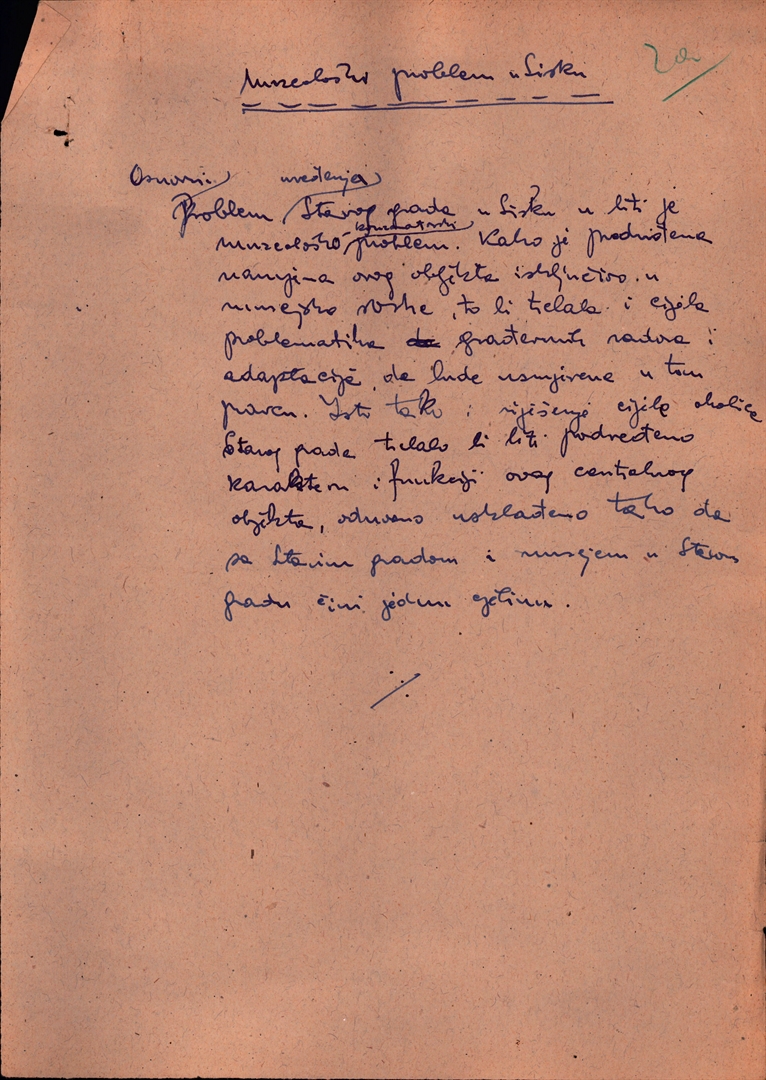 Muzeološki problem u Sisku
Osnovni uređenja
Problem Starog grada u Sisku u biti je
konzervatorski
muzeološko problem. Kako je predviđena
namjena ovog objekta isključivo u
muzejske svrhe, to bi trebala i cijela
problematika građevnih radova i
adaptacije, da bude usmjerena u tom
pravcu. Isto tako i rješenje cijele okolice
Starog grada trebalo bi biti podređeno
karakteru i funkciji ovog centralnog
objekta, odnosno usklađeno tako da
sa Starim gradom i muzejem u Starom
gradu čini jednu cjelinu.
./.